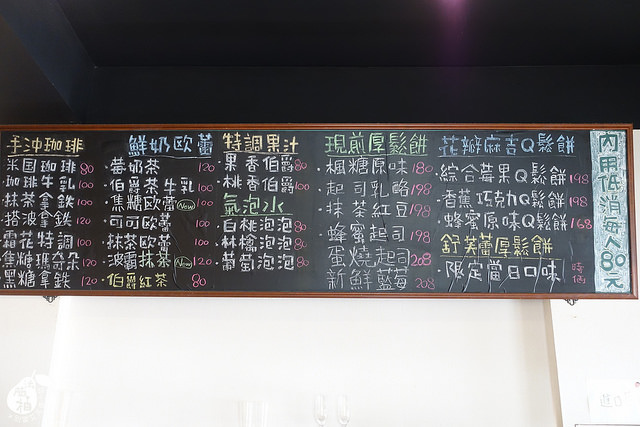 手沖珈琲
米国珈琲 80
珈琲牛乳 100
抹茶拿鉄 100
搭波拿鉄 120
霜花特調 100
焦糖瑪奇朵 120
黑糖拿鉄 120
鮮奶歐蕾
莓奶茶 120
伯爵茶牛乳 100
焦糖歐蕾 New 100
可可歐蕾 100
抹茶歐蕾 100
波霸抹茶 New 120
伯爵紅茶 80
特調果汁
果香伯爵 80
桃香伯爵 100
氣泡水
白桃泡泡 80
林檎泡泡 80
葡萄泡泡 80
現煎厚鬆餅
楓糖原味 180
起司乳酪 198
抹茶紅豆 198
蜂蜜起司 198
蛋燒起司 208
新鮮藍莓 208
花瓣麻吉Q鬆餅
綜合莓果Q鬆餅 198
香蕉巧克力Q鬆餅 198
蜂蜜原味Q鬆餅 168
舒芙蕾厚鬆餅
限定當日口味 時價
內用低消每人80元